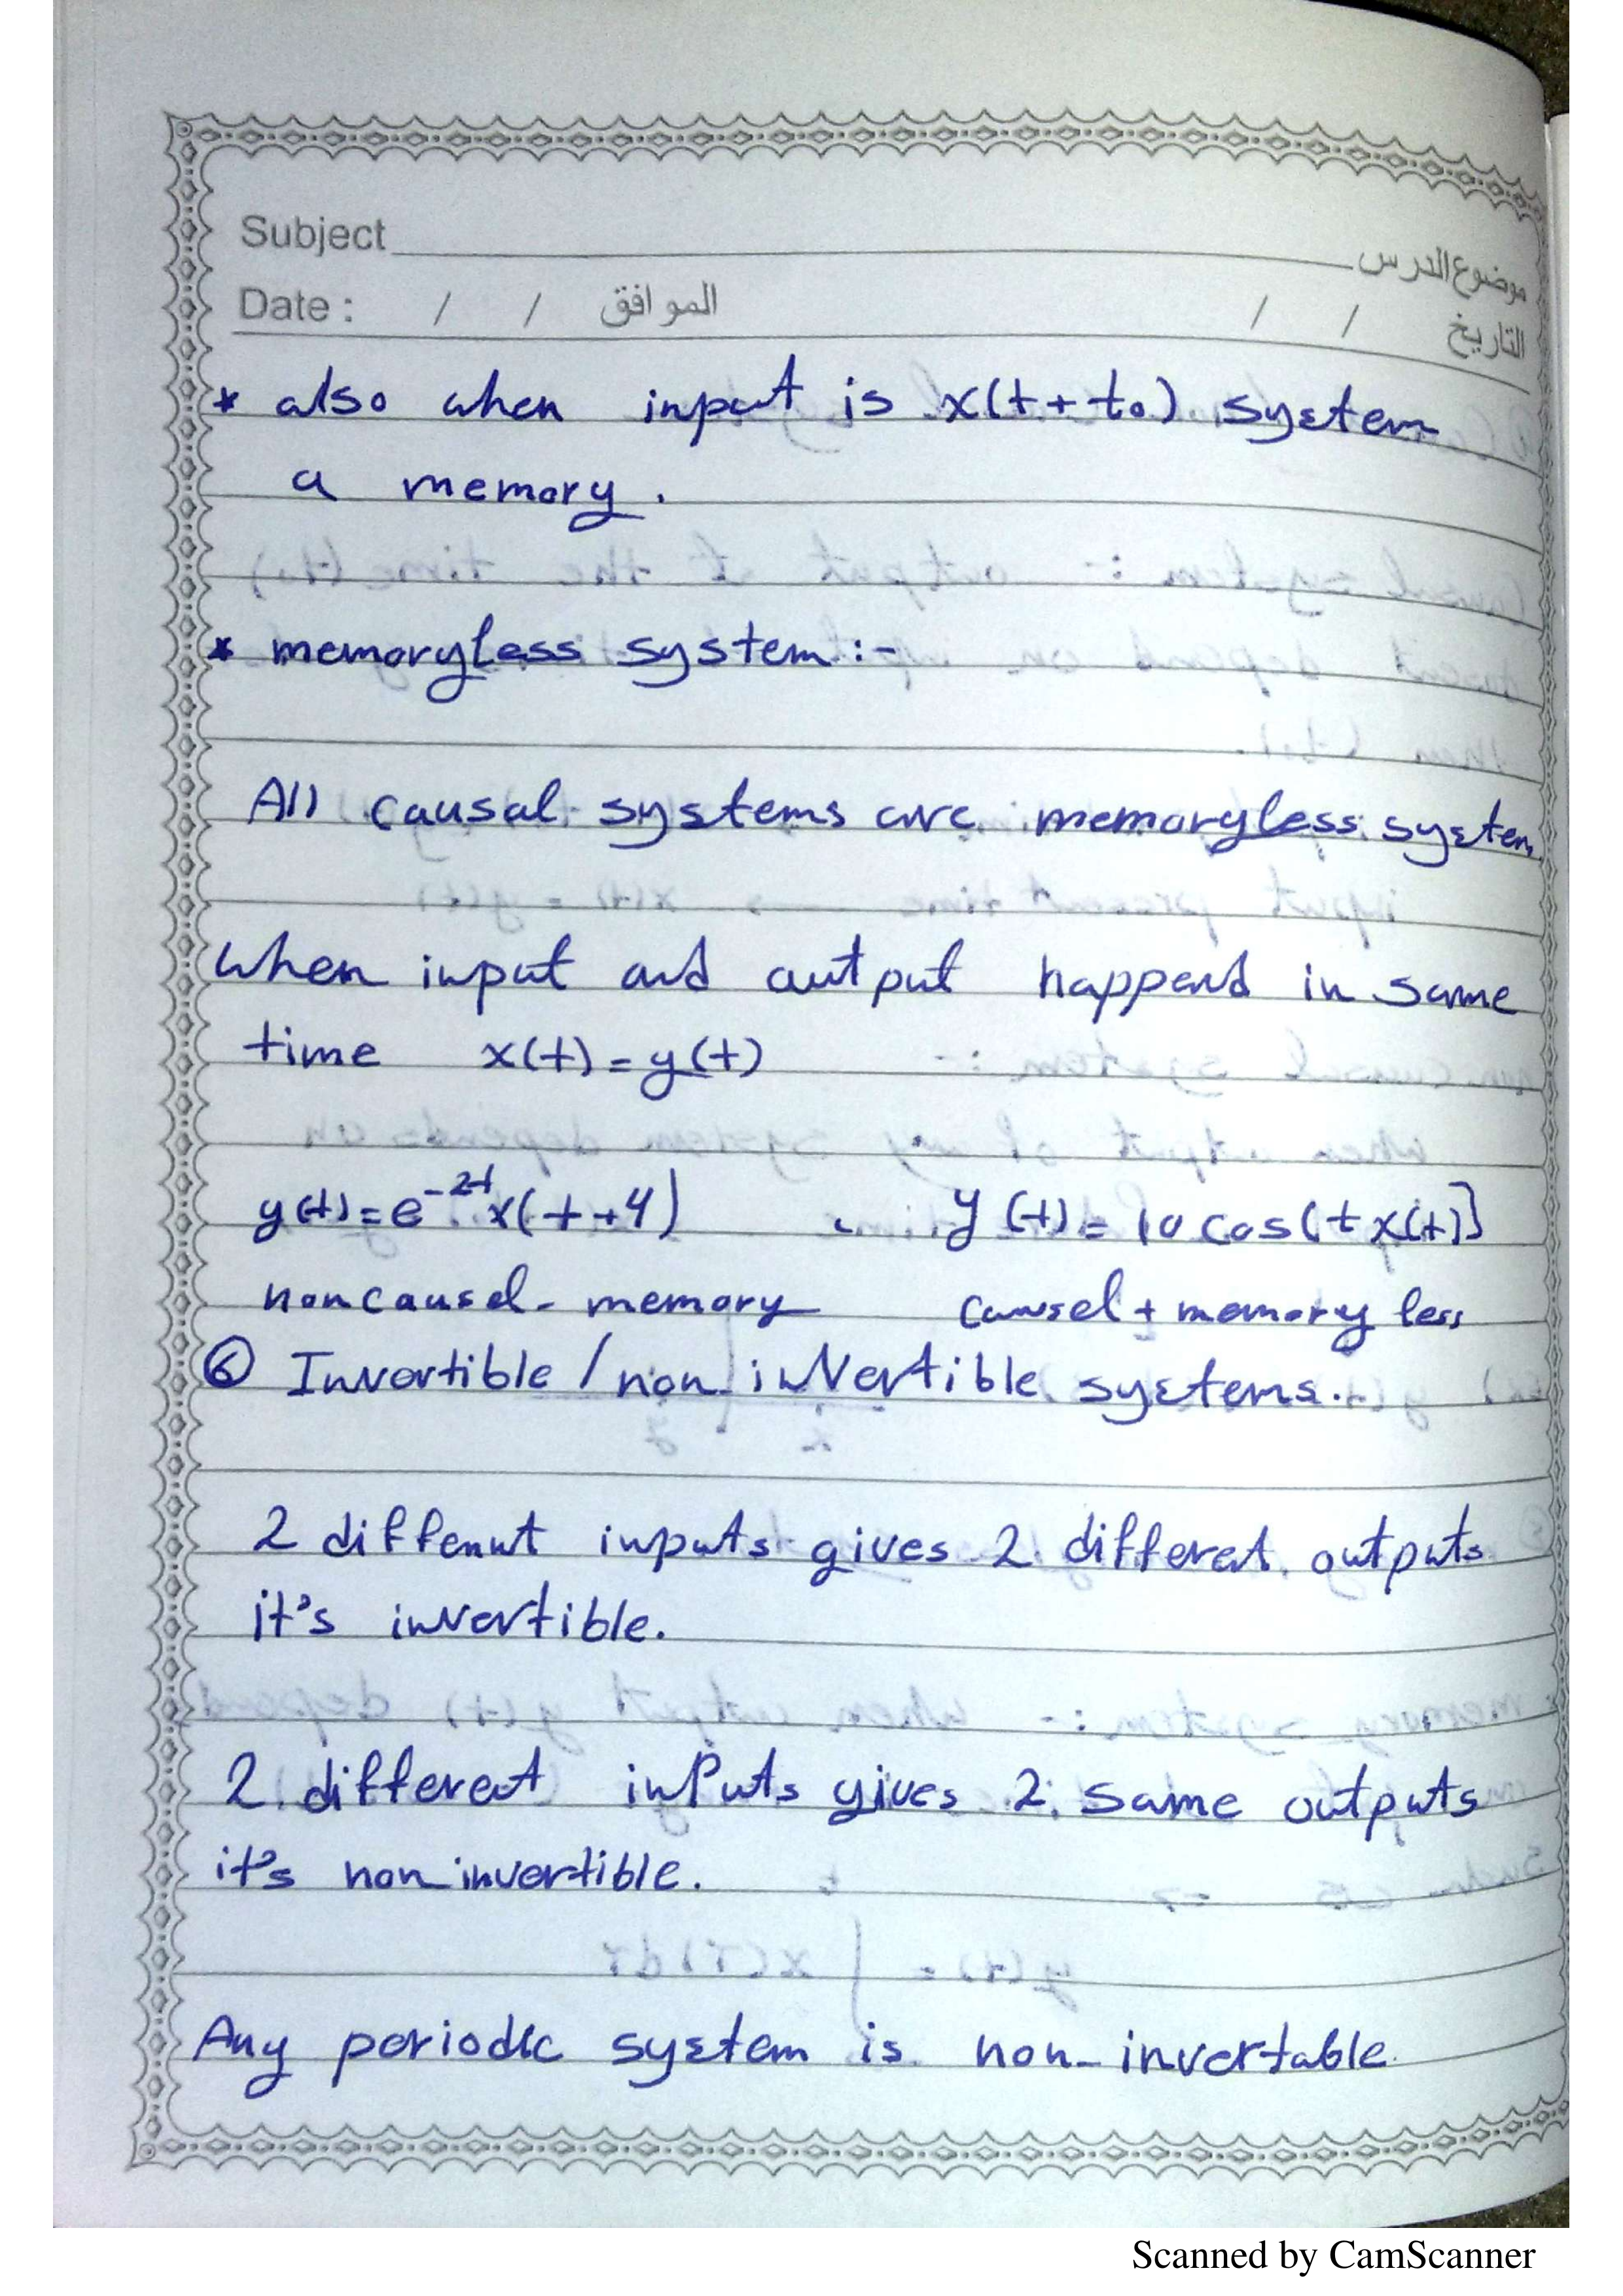 Subject موضوع الدرس
Date : / / الموافق / / التاريخ
* also when input is x(t+t₀) system
a memory.
* memoryless system:-
All causal systems are memoryless system
when input and output happend in same
time x(t)=y(t)
y(t)=e⁻²ᵗx(t+4) , y(t)=10cos(tx(t)]
noncausel- memory causel+memoryless
⑥ Invertible/non invertible systems.
2 diffenut inputs gives 2 differet outputs
it's invertible.
2 different inputs gives 2 same outputs
it's non invertible.
Any periodic system is non-invertable.
Scanned by CamScanner